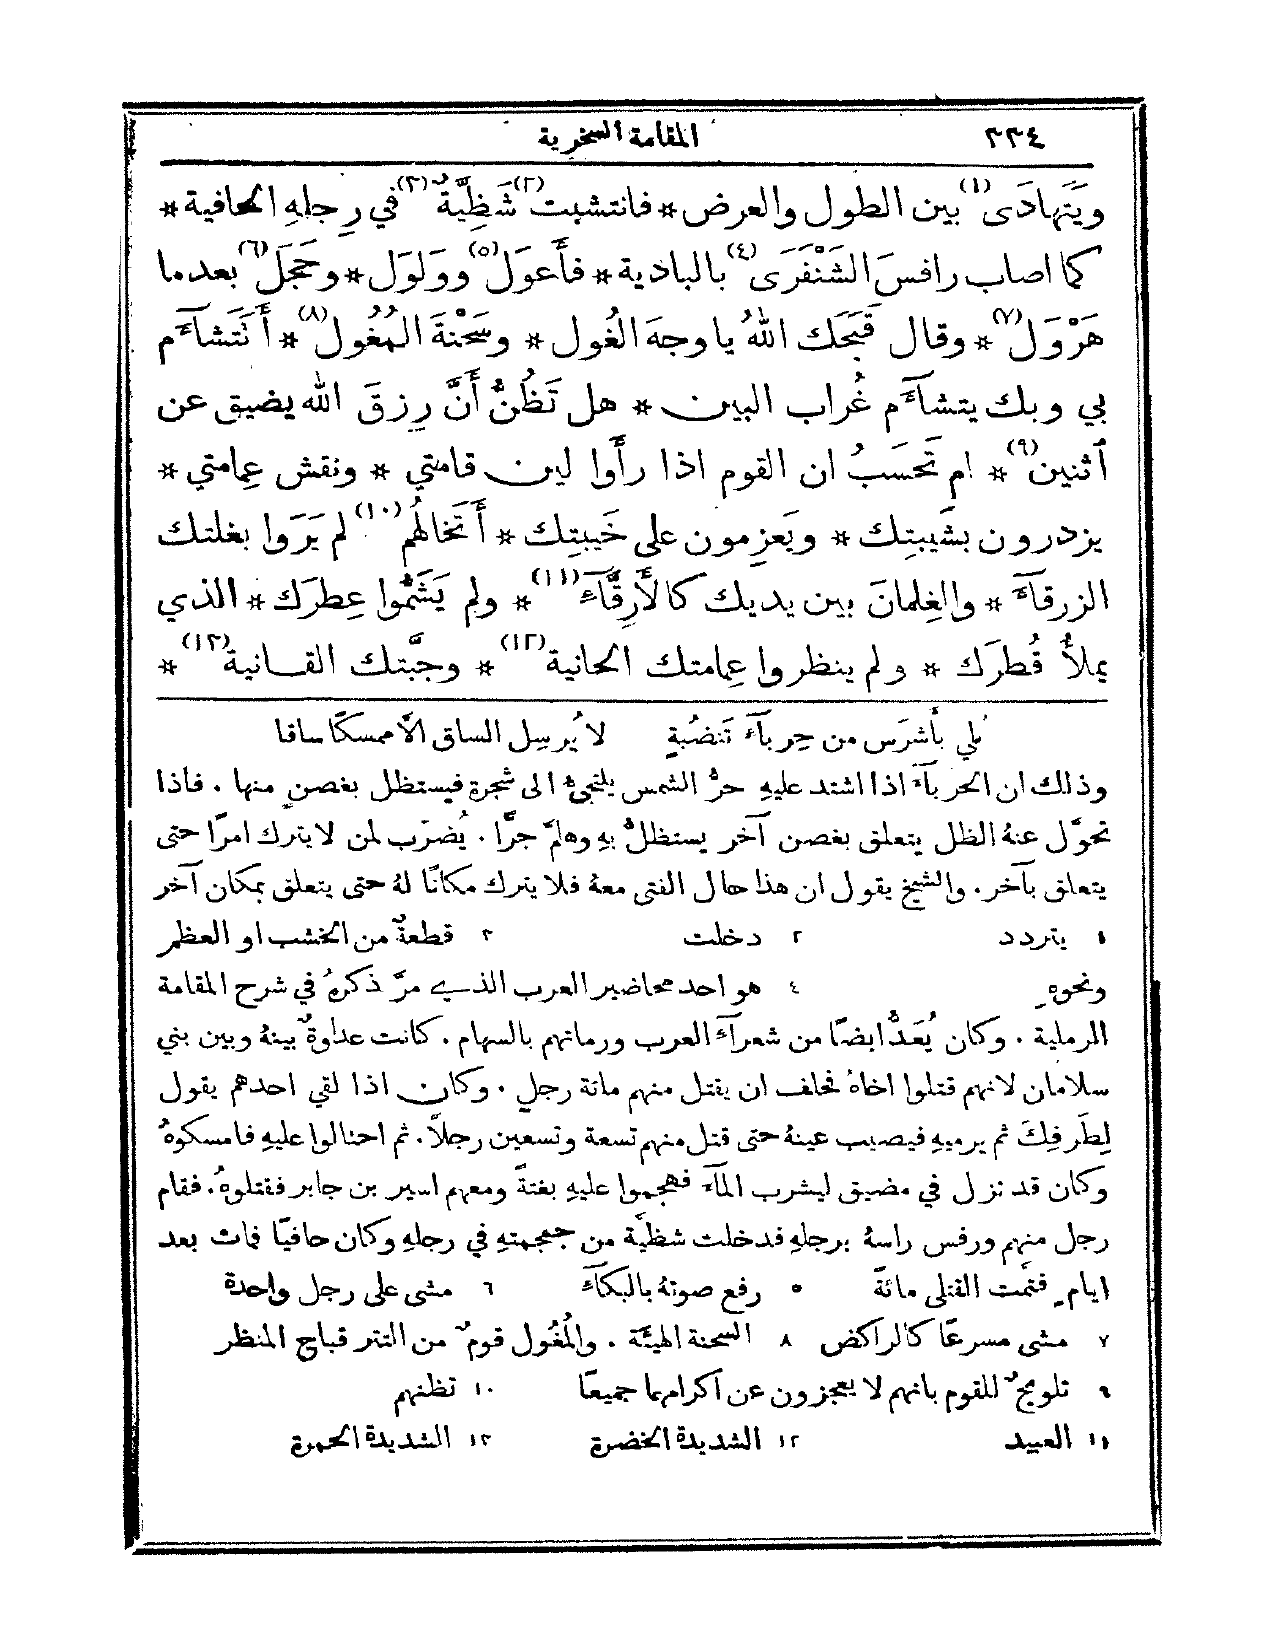 ٣٣٤ المقامة السخرية
ويَتَهادَى(١) بين الطول والعرض * فانتشبت(٢) شَظِيَّةٌ(٣) في رِجلهِ الحافية *
كما اصاب رافسَ الشَنْفَرَى(٤) بالبادية * فأَعوَل(٥) ووَلوَل * وحَجَل(٦) بعد ما
هَرْوَل(٧) * وقال قَبَّحَك اللهُ يا وجهَ الغُول * وسَحْنةَ المُغُول(٨) * أَتَتشآءَم
بي وبك يتشآءَم غُراب البين * هل تَظُنُّ أَنَّ رِزقَ الله يضيق عن
اثنين(٩) * ام تَحسَبُ ان القوم اذا رأَوا لين قامتي * ونقش عِمامتي *
يزدرون بشَيبتِك * ويَعزِمون على خَيبتِك * أَتَخالُهُم(١٠) لم يَرَوا بغلتك
الزرقآءَ * والغِلمانَ بين يديك كالأَرِقَّآءِ(١١) * ولم يَشَمُّوا عِطرَك * الذي
يملأُ قُطرَك * ولم ينظروا عِمامتك الحانية(١٢) * وجُبَّتك القانية(١٣) *
بُلي بأَشرَس من حِربآءِ تَنضُبةٍ لا يُرسِل الساق الاَّ ممسكًا ساقا
وذلك ان الحربآءَ اذا اشتد عليهِ حرُّ الشمس يلتجئُ الى شجرة فيستظل بغصنٍ منها . فاذا
تحوَّل عنهُ الظل يتعلق بغصن آخر يستظلُّ بهِ وهلمَّ جرًّا . يُضرَب لمن لا يترك امرًا حتى
يتعلق بآخر . والشيخ يقول ان هذا حال الفتى معهُ فلا يترك مكانًا لهُ حتى يتعلق بمكان آخر
١ يتردد ٢ دخلت ٣ قطعةٌ من الخشب او العظم
ونحوهِ ٤ هو احد محاضير العرب الذي مرَّ ذكرهُ في شرح المقامة
الرملية . وكان يُعَدُّ ايضًا من شعرآءِ العرب ورماتهم بالسهام . كانت عداوةٌ بينهُ وبين بني
سلامان لانهم قتلوا اخاهُ فحلف ان يقتل منهم مائة رجلٍ . وكان اذا لقي احدهم يقول
لِطَرفِكَ ثم يرميهِ فيصيب عينهُ حتى قتل منهم تسعة وتسعين رجلاً . ثم احتالوا عليهِ فامسكوهُ
وكان قد نزل في مضيق ليشرب المآءَ فهجموا عليهِ بغتةً ومعهم اسير بن جابر فقتلوهُ . فقام
رجل منهم ورفس راسهُ برجلهِ فدخلت شظيَّة من جمجمتهِ في رجلهِ وكان حافيًا فمات بعد
ايامٍ فتمت القتلى مائةً ٥ رفع صوتهُ بالبكآءِ ٦ مشى على رجل واحدة
٧ مشى مسرعًا كالراكض ٨ السحنة الهيئة . والمُغُول قومٌ من التتر قباح المنظر
٩ تلويحٌ للقوم بانهم لا يعجزون عن اكرامهما جميعًا ١٠ تظنهم
١١ العبيد ١٢ الشديدة الخضرة ١٣ الشديدة الحمرة